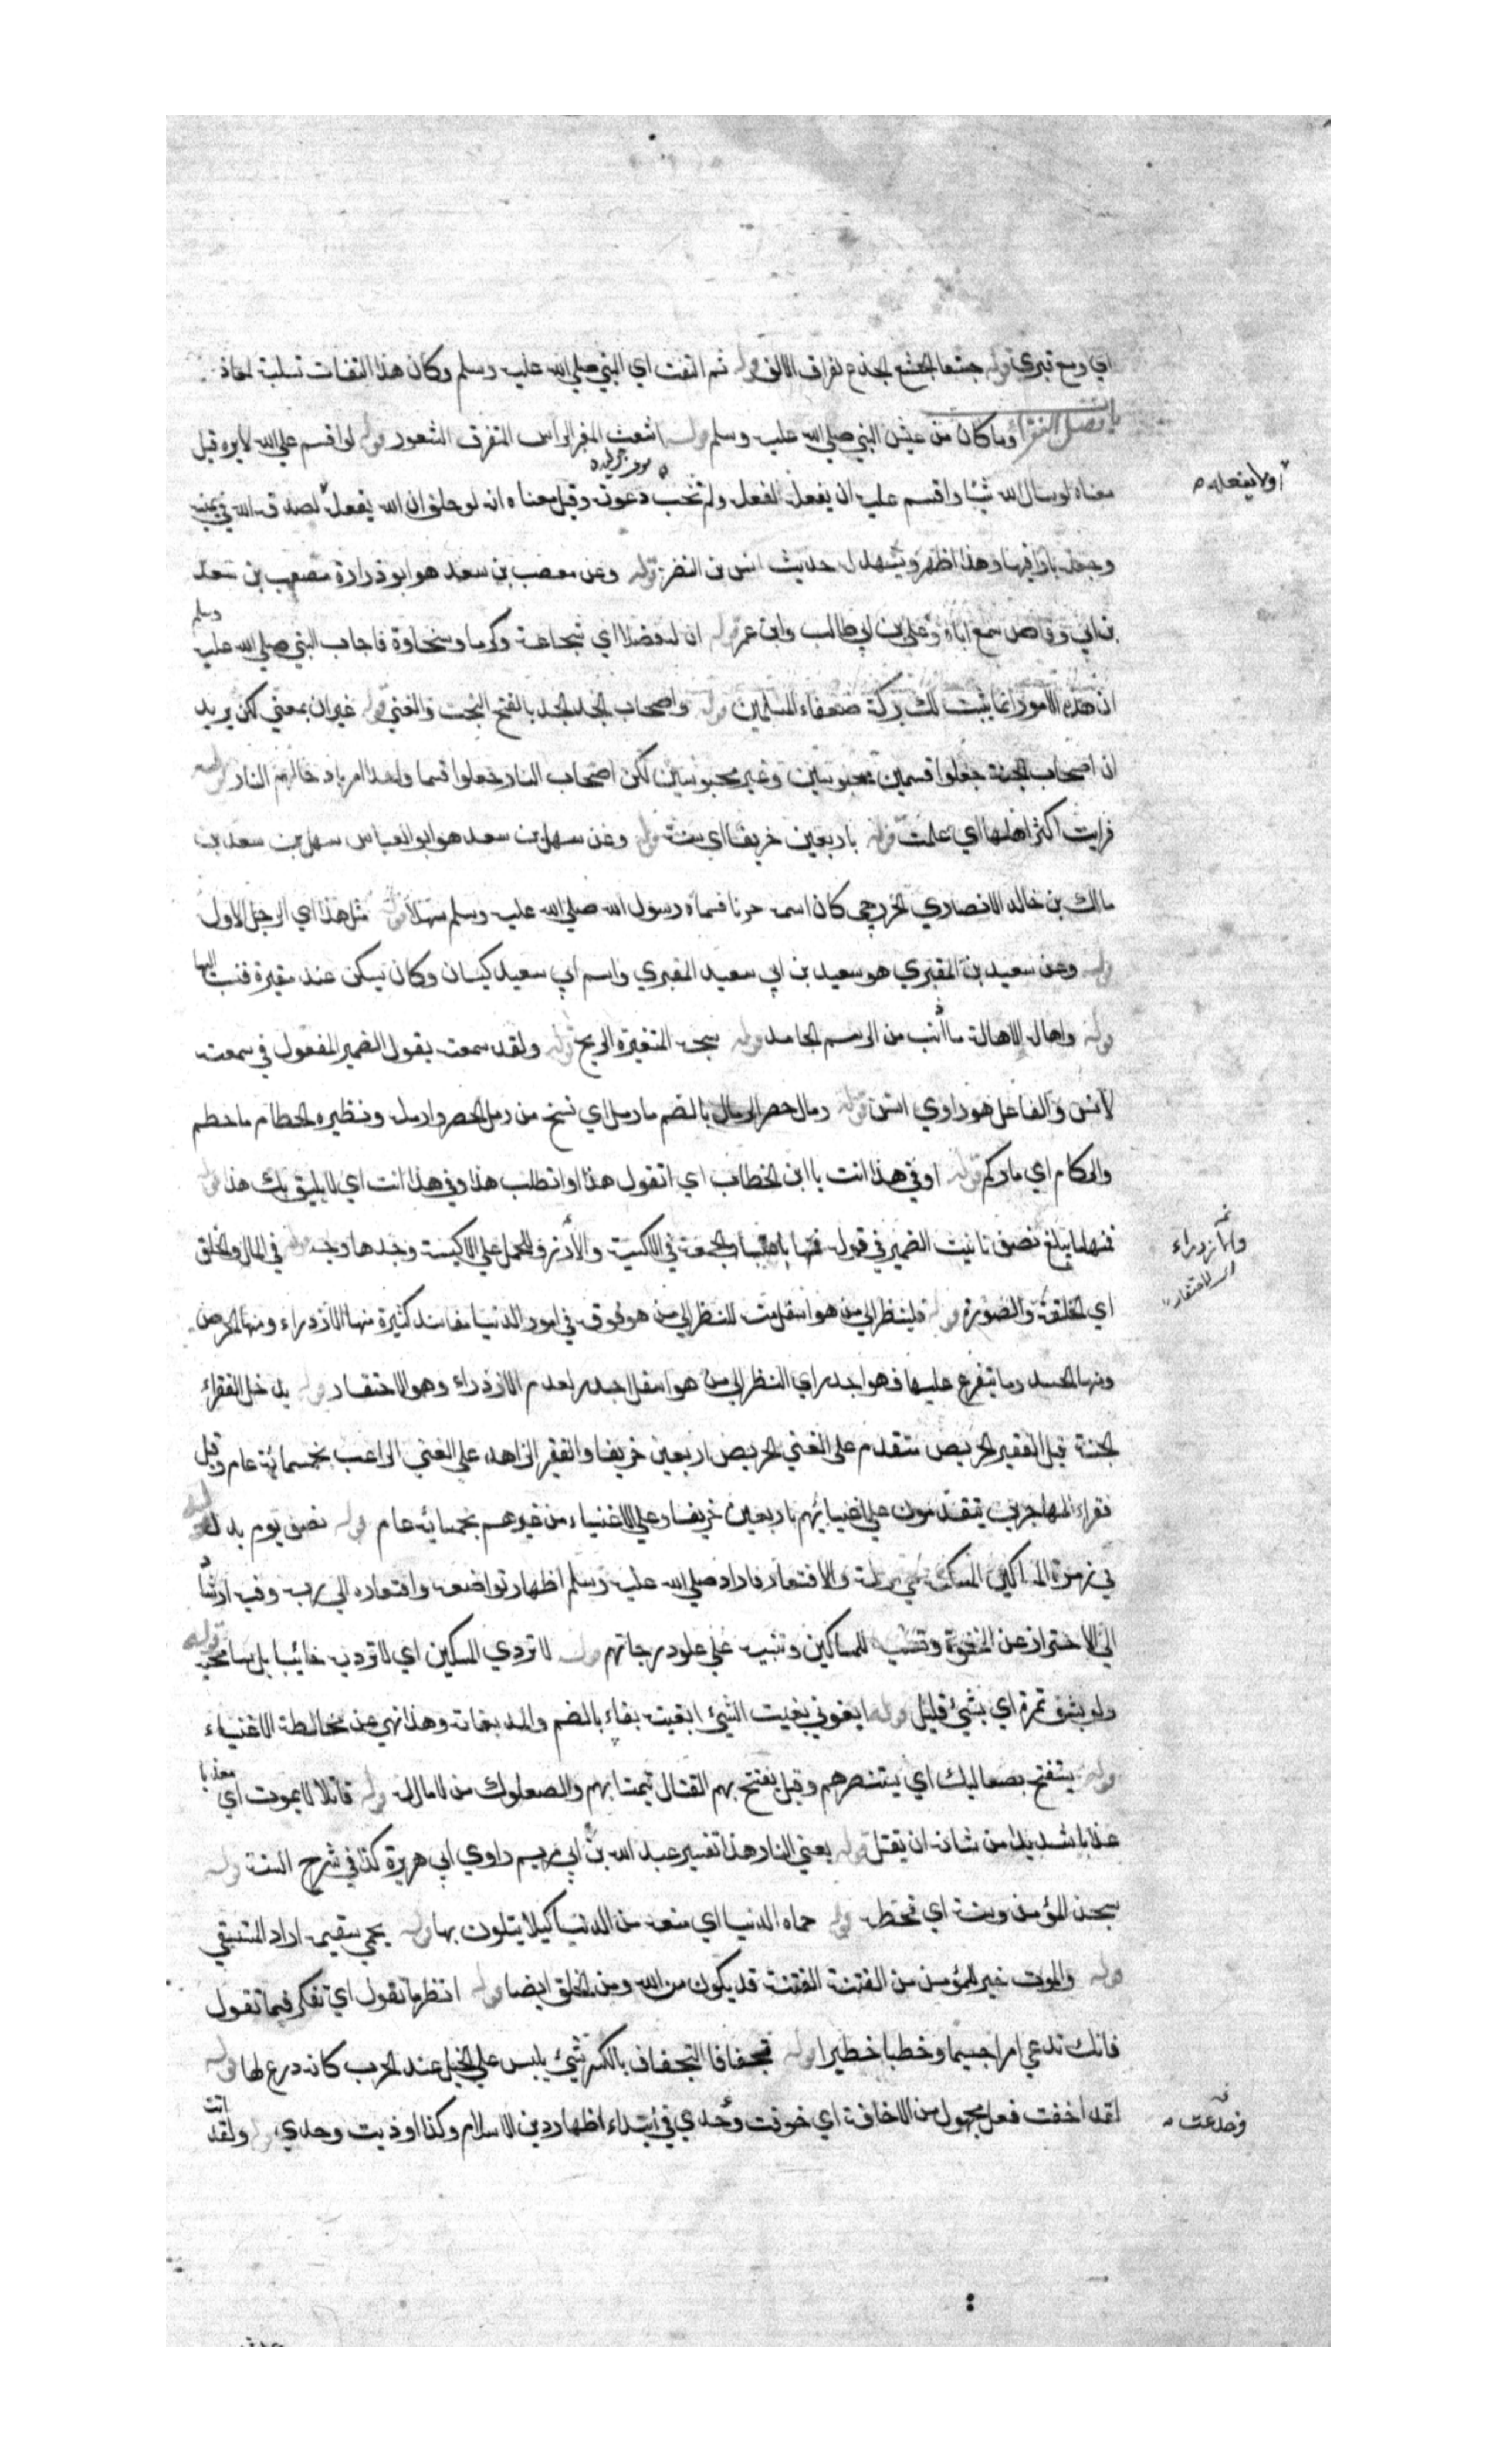 اي ومع قبري قوله جشعا الجشع الجذع لفراق الالف قوله ثم التفت اي النبي صلي الله عليه وسلم وكان هذا التفات تسلية لمعاذ
باب فضل الفقراء وما كان من عيش النبي صلي الله عليه وسلم قوله اشعث المغبر الراس المتفرق الشعور قوله لو اقسم علي الله لابره قيل
معناه لو سال الله شيئا واقسم عليه ان يفعل لفعل ولم تخب دعوته وقيل معناه انه لو حلف ان الله يفعل لصدقه الله في يمينه
او لا يفعله
وجعله بارا فيها وهذا اظهر ويشهد له حديث انس بن النضر قوله وعن معصب بن سعد هو ابو ذرارة مصعب بن سعد
بن ابي وقاص سمع اباه وعلي بن ابي طالب وابن عمر قوله ان له فضلا اي شجاعة وكرما وسخاوة فاجاب النبي صلي الله عليه وسلم
ان هذه الامور انما يثبت لك بركة ضعفاء المسلمين قوله واصحاب الجد الجد بالفتح البخت والغني قوله غير ان بمعني لكن يريد
ان اصحاب الجنة جعلوا قسمين محبوسين وغير محبوسين لكن اصحاب النار جعلوا قسما واحدا امر بادخالهم النار قوله
فرايت اكثر اهلها اي علمت قوله باربعين خريفا اي سنة قوله وعن سهل بن سعد هو ابو العباس سهل بن سعد بن
مالك بن خالد الانصاري الخزرجي كان اسمه حزنا فسماه رسول الله صلي الله عليه وسلم سهلا قوله مثل هذا اي الرجل الاول
قوله وعن سعيد بن المقبري هو سعيد بن ابي سعيد المقبري واسم ابي سعيد كيسان وكان يسكن عند مقبرة فنسب اليها
قوله واهالة الاهالة ما اذيب من الدسم الجامد قوله سنخة المتغيرة الريح قوله ولقد سمعته يقول الضمير المفعول في سمعته
لانس والفاعل هو راوي انس قوله رمال حصير الرمال بالضم ما رمل اي نسج من رمل الحصير وارمله ونظيره الحطام ما حطم
والركام اي ما ركم قوله او في هذا انت يا ابن الخطاب اي اتقول هذا او اتطلب هذا وفي هذا انت اي لا يليق بك هذا قوله
فمنها ما يبلغ نصف تانيث الضمير في قوله فمنها باعتبار الجمعة في الاكسية والازر وللحمل علي الاكيسة وحدها وجه قوله في المال والخلق
اي الخلقة والصورة قوله فلينظر الي من هو اسفل منه للنظر الي من هو فوقه في امور الدنيا مفاسد كثيرة منها الازدراء ومنها الحرص
ومنها الحسد وما يتفرع عليها فهو اجدر اي النظر الي من هو اسفل اجدر لعدم الازدراء وهو الاحتقار قوله يدخل الفقراء
الجنة قيل الفقير الحريص متقدم علي الغني الحريص اربعين خريفا والفقير الزاهد علي الغني الراغب بخمسمائة عام وقيل
فقراء المهاجرين يتقدمون علي اغنيائهم باربعين خريفا وعلي الاغنياء من غيرهم بخمسمائه عام قوله نصف يوم بدل قوله
في زمرة المساكين والافتقار فاراد صلي الله عليه وسلم اظهار تواضعه وافتقاره الي ربه وفيه ارشاد
الي الاحتراز عن النخوة للمساكين وتنبيه علي علو درجاتهم قوله لا تردي المسكين اي لا تردينه خائبا بل سامحيه قوله
ولو بشق تمرة اي بشيئ قليل قوله ابغوني بغيت الشيئ ابغيه بغاء بالضم والمد وهذا نهي عن مخالطة الاغنياء
قوله يستفتح بصعاليك اي يستنصرهم وقيل يفتح بهم القتال تيمنا بهم والصعلوك من لا مال له قوله قاتلا لا يموت اي معذبا
عذابا شديدا من شانه ان يقتل قوله يعني النار هذا تفسير عبد الله بن ابي مريم راوي ابي هريرة كذا في شرح السنة قوله
سجن المؤمن وسنة اي قحط قوله حماه الدنيا اي منعه من الدنيا كيلا يتلوث بها قوله يحمي سقيمه اراد المستسقي
قوله والموت خير للمؤمن من الفتنة الفتنة قد يكون من الله ومن الخلق ايضا قوله انظر ما تقول اي تفكر فيما تقول
فانك تدعي امرا جسيما وخطبا خطيرا قوله تجفافا التجفاف بالكسر شيئ يلبس علي الخيل عند الحرب كانه درع لها قوله
لقد اخفت فعل مجهول من الاخافة اي خوفت وحدي في ابتداء اظهار دين الاسلام وكذا اوذيت وحدي قوله ولقد اتت